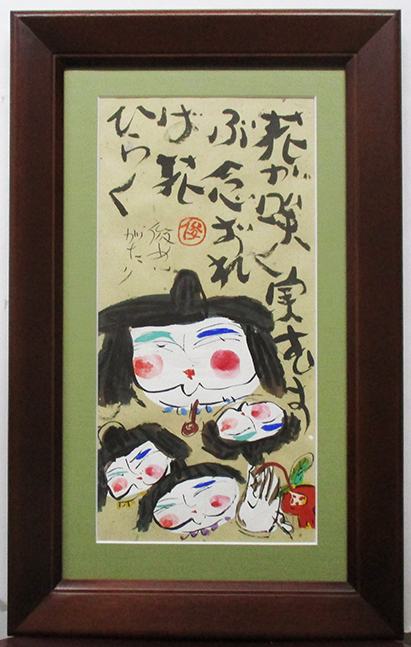 花が咲く実をむす
ぶ念ずれ
ば花
ひらく
俊
がたり